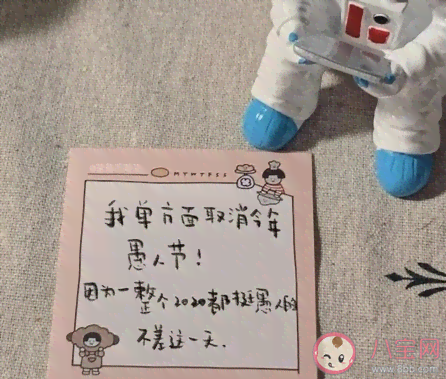 MYMYTESS
我单方面取消今年
愚人节！
因为一整个2020都挺愚人的
不差这一天.
八宝网
www.8bb.com